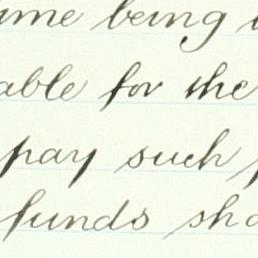 ume being
able for the
pay such
funds sha